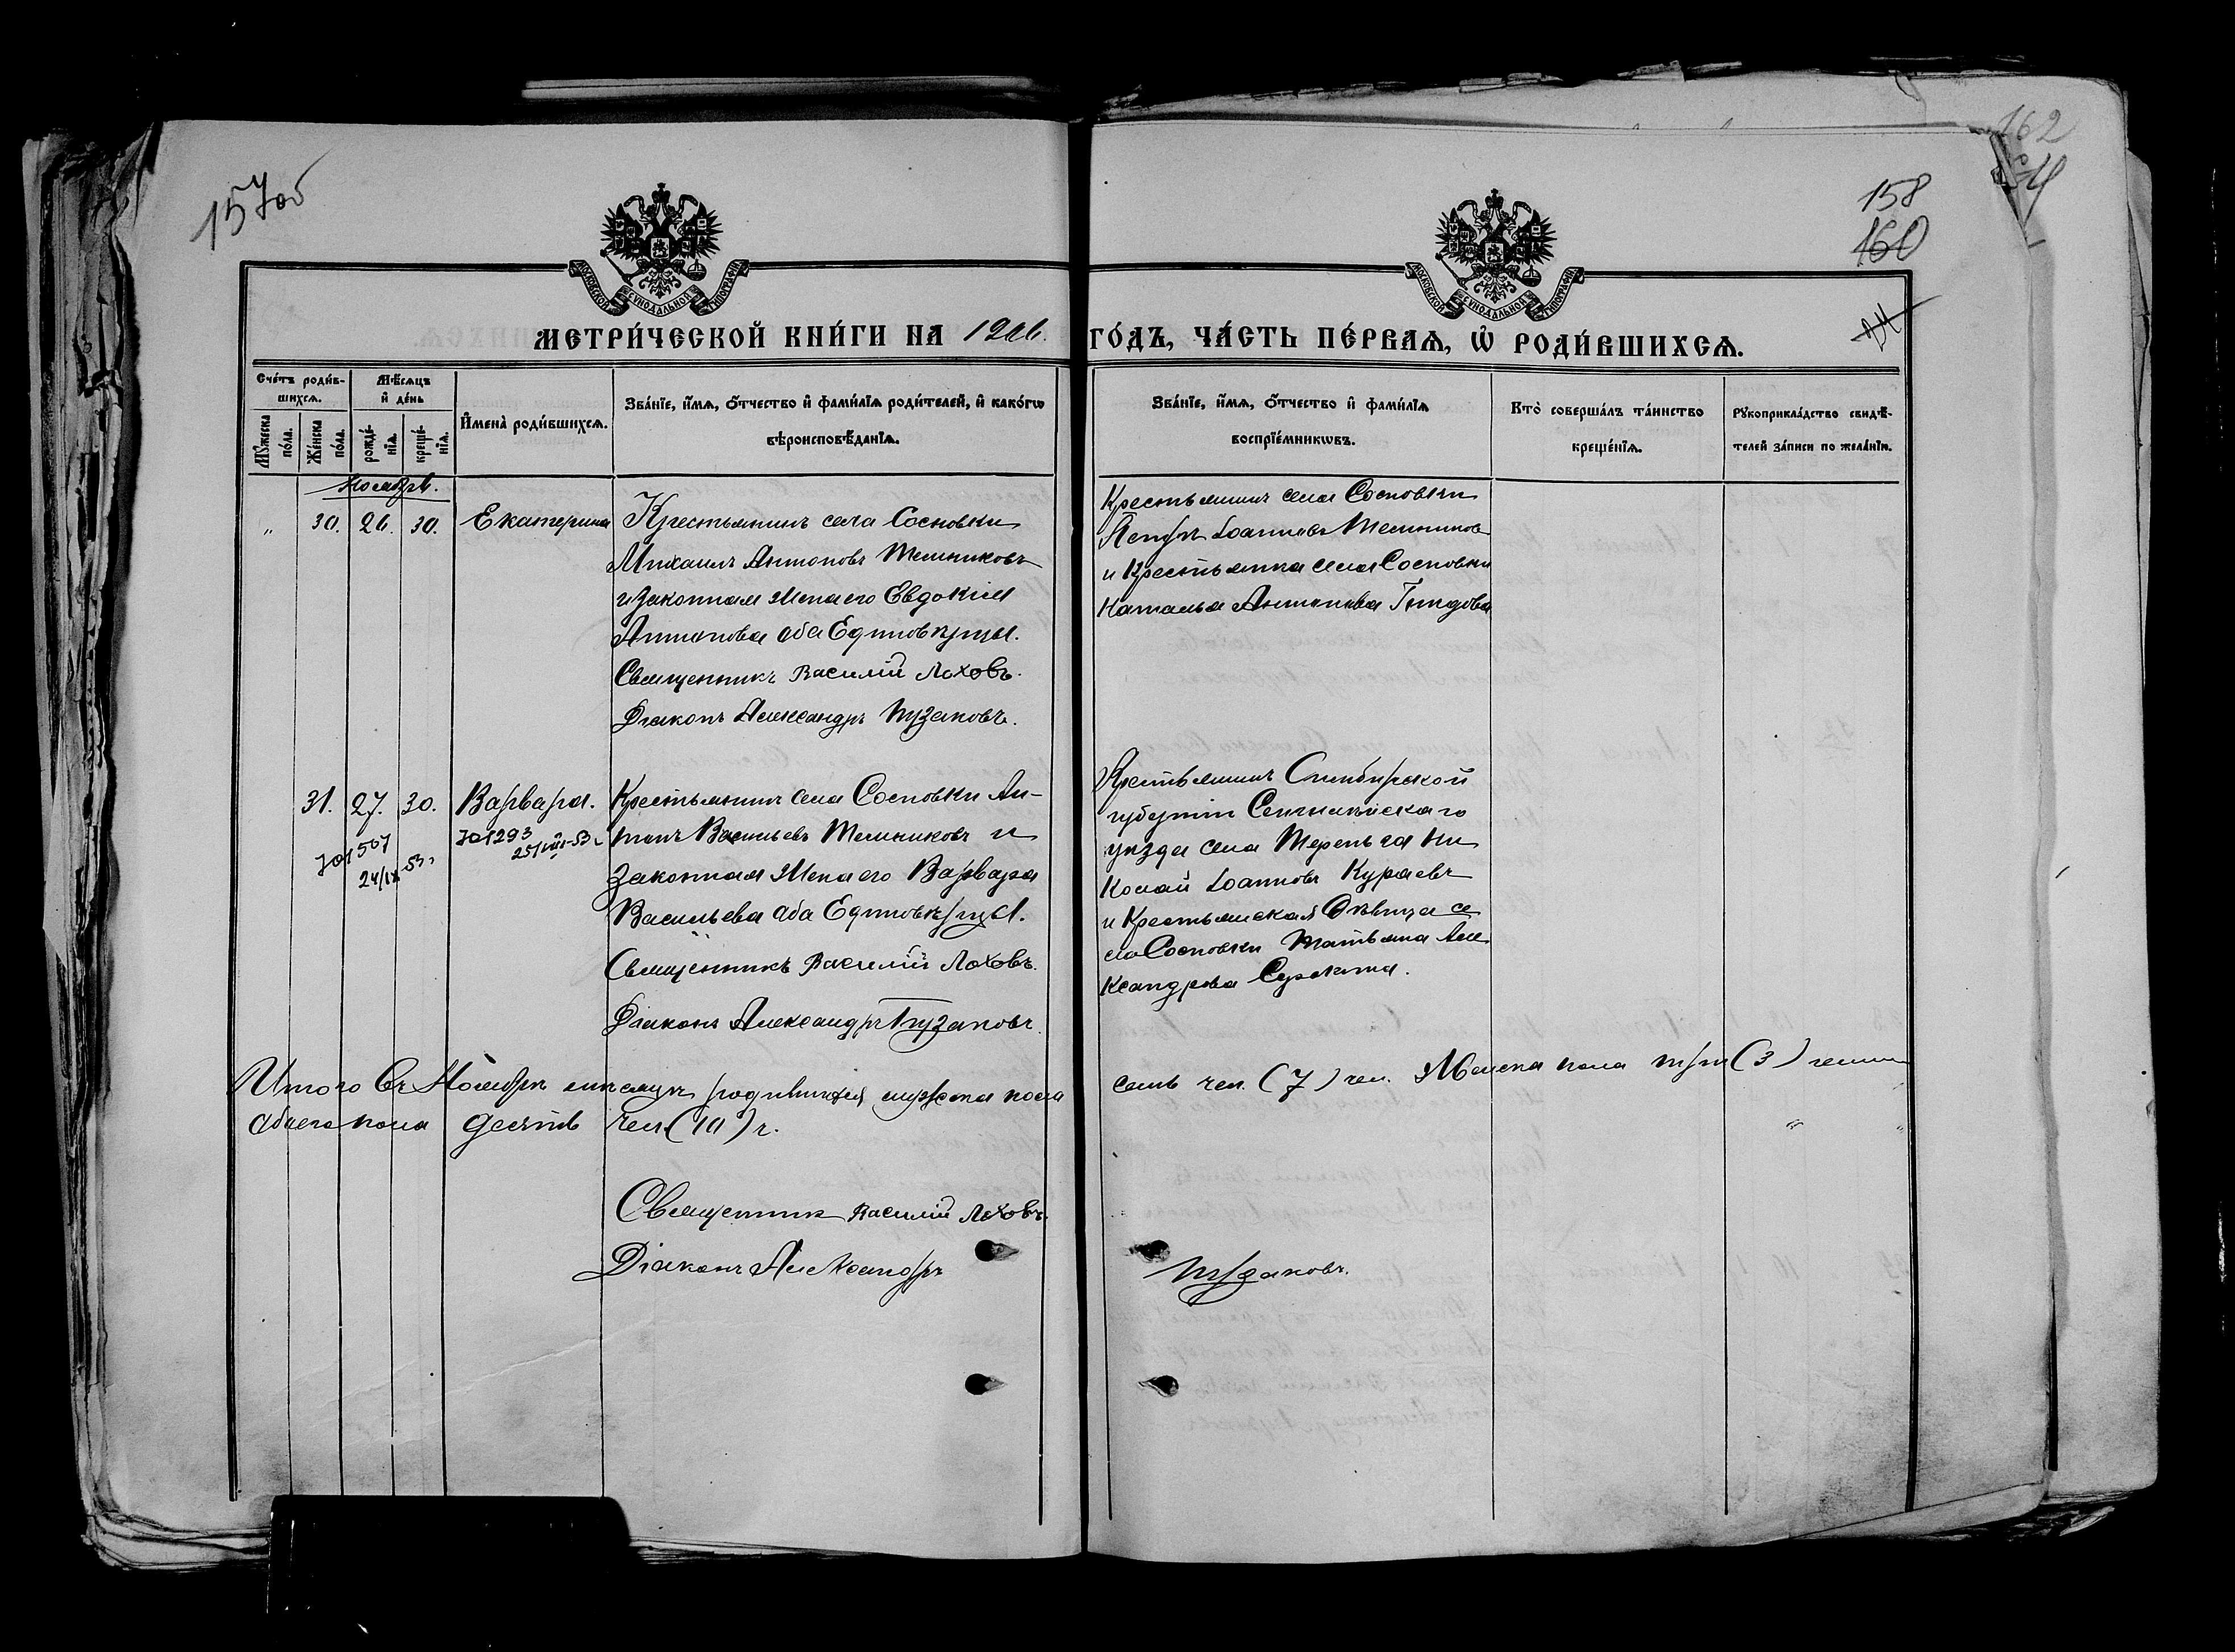 157об
162
158
160
МОСКОВСКОЙ СУНОДАЛЬНОЙ ТИПОГРАФІИ
МОСКОВСКОЙ СУНОДАЛЬНОЙ ТИПОГРАФІИ
МЕТРИ́ЧЕСКОЙ КНИ́ГИ НА
ГО́ДЪ, ЧА́СТЬ ПЕ́РВАѦ, Ѡ҆ РОДИ́ВШИХСѦ.
Сче́тъ роди́в-
шихсѧ.
Мѣ́сѧцъ
и҆ де́нь
Мꙋ́жеска
по́ла.
Же́нска
по́ла.
рожде́-
нїѧ.
креще́-
нїѧ.
И҆мена̀ роди́вшихсѧ.
Зва́нїе, и҆́мѧ, ѻ҆́тчество и҆ фами́лїѧ роди́телей, и҆ како́гѡ
вѣроисповѣ́данїѧ.
Зва́нїе, и҆́мѧ, ѻ҆́тчество и҆ фами́лїѧ
воспрїе́мникѡвъ.
Кто̀ соверша́лъ та́инство
креще́нїѧ.
Рꙋкоприкла́дство свидѣ́-
телей за́писи по жела́нїю.
Ноябрь.
" 30. 26. 30. Екатерина
Крестьянинъ села Сосновки
Михаилъ Антоновъ Мельниковъ
и законная жена его Евдокія
Антонова оба Единовѣрцы.
Священникъ Василій Лоховъ.
Діаконъ Александръ Пузановъ.
Крестьянинъ села Сосновки
Петръ Іоанновъ Мельников
и Крестьянка села Сосновки
Наталья Антонова
31. 27. 30. Варвара.
701293
25/VIII-53
701507
24/IX-53
Крестьянинъ села Сосновки Ан-
тонъ Васильевъ Мельниковъ и
законная жена его Варвара
Васильева оба Единовѣрцы.
Священникъ Василій Лоховъ.
Діаконъ Александръ Пузановъ.
Крестьянинъ Симбирской
губерніи Сенгилѣйскаго
уѣзда села Тереньга Ни
колай Іоанновъ Кураевъ
и Крестьянская Дѣвица се
ла Сосновки Татьяна Але
ксандрова
Итого въ Ноябрѣ мѣсяцѣ родившихся мужска пола
семь чел. (7) чел. Женска пола три (3)
обоего пола десять чел. (10) ч.
Священникъ Василій Лоховъ.
Діаконъ Александръ
Пузановъ.